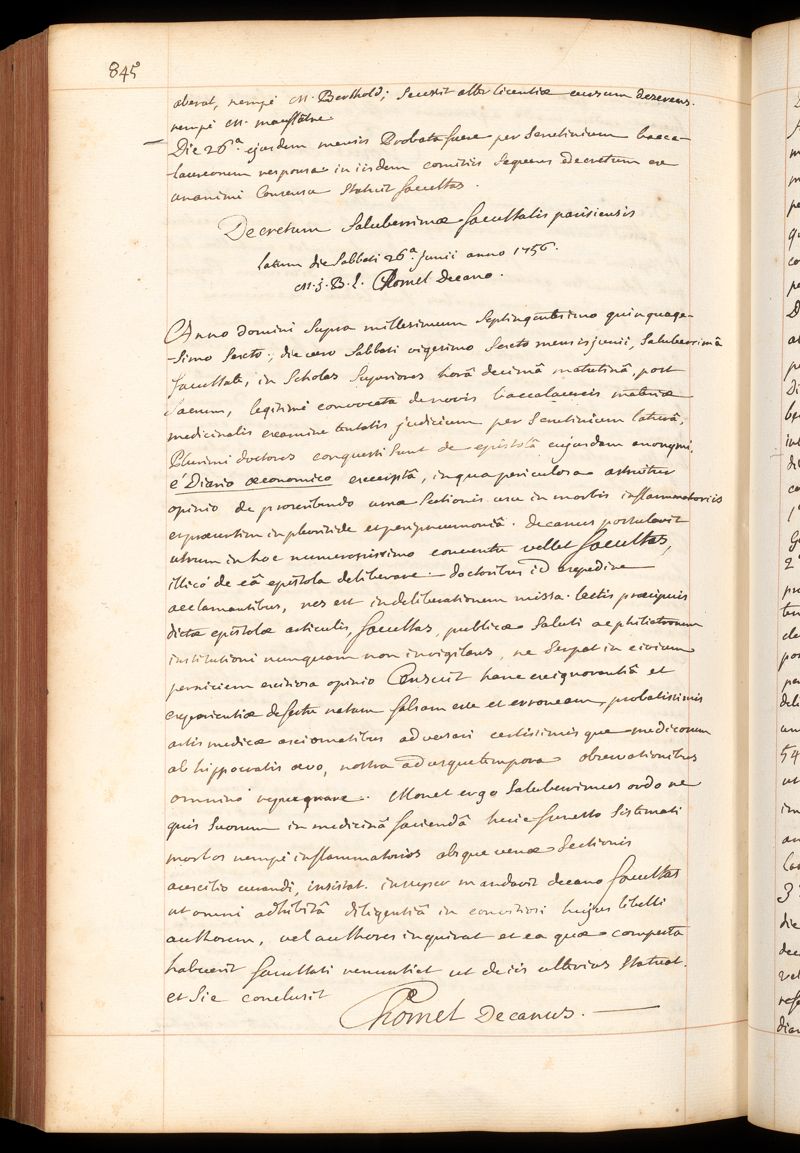 845
aberat, nempè M. Berthold; secessit alter licentiæ cursum deserens.
nempè M.
Die 26.a ejusdem mensis probata fuere per scrutinium bacca-
-laureorum responsa in iisdem comitiis sequens decretum ex
unanimi consensu statuit facultas.
Decretum Saluberrimæ facultatis parisiensis
latum die Sabbati 26.a Junii anno 1756.
M. J. B. L. Chomel Decano.
Anno domini supra millesimum septingentesimo quinquage-
-simo sexto; die vero Sabbati vigesimo sexto mensis junii, Saluberrimâ
facultate, in Scholas Superiores horâ decimâ matutinâ, post
Sacrum, legitimè convocata de novis baccalaureis materiæ
medicinalis examine tentatis judicium per scrutinium laturâ,
Plurimi doctores conquesti sunt de epistolâ cujusdam anonymi,
è Diario œconomico excerptâ, in qua periculosa astruitur
opinio de proscribendo venæ sectionis usu in morbis inflammatoriis
et præsertim in pleuritide et peripneumoniâ. decanus postulavit
utrum in hoc numerosissimo conventu vellet facultas,
illicò de eâ epistola deliberare. doctoribus id expedire
acclamantibus, res est in deliberationem missa. lectis præcipuis
dictæ epistolæ articulis, facultas, publicæ saluti ac philiatrorum
institutioni nunquam non invigilans, ne serpat in civium
perniciem exitiosa opinio Censuit hanc ex ignorantiâ et
experientiæ defectu natam falsam esse et erroneam, probatissimis
artis medicæ axiomatibus adversari certissimisque medicorum
ab hippocratis ævo, nostra ad usque tempora observationibus
omninò repugnare. Monet ergo Saluberrimus ordo ne
quis suorum in medicinâ faciendâ huic funesto sistemati
morbos nempè inflammatorios absque venæ sectionis
auxilio curandi, insistat. insuper mandavit decano facultas
ut omni adhibitâ diligentiâ in convitiosi hujus libelli
authorem, vel authores inquirat et ea quæ comperta
habuerit facultati renuntiet ut de iis ulterius statuat.
et sic conclusit
Chomel Decanus.